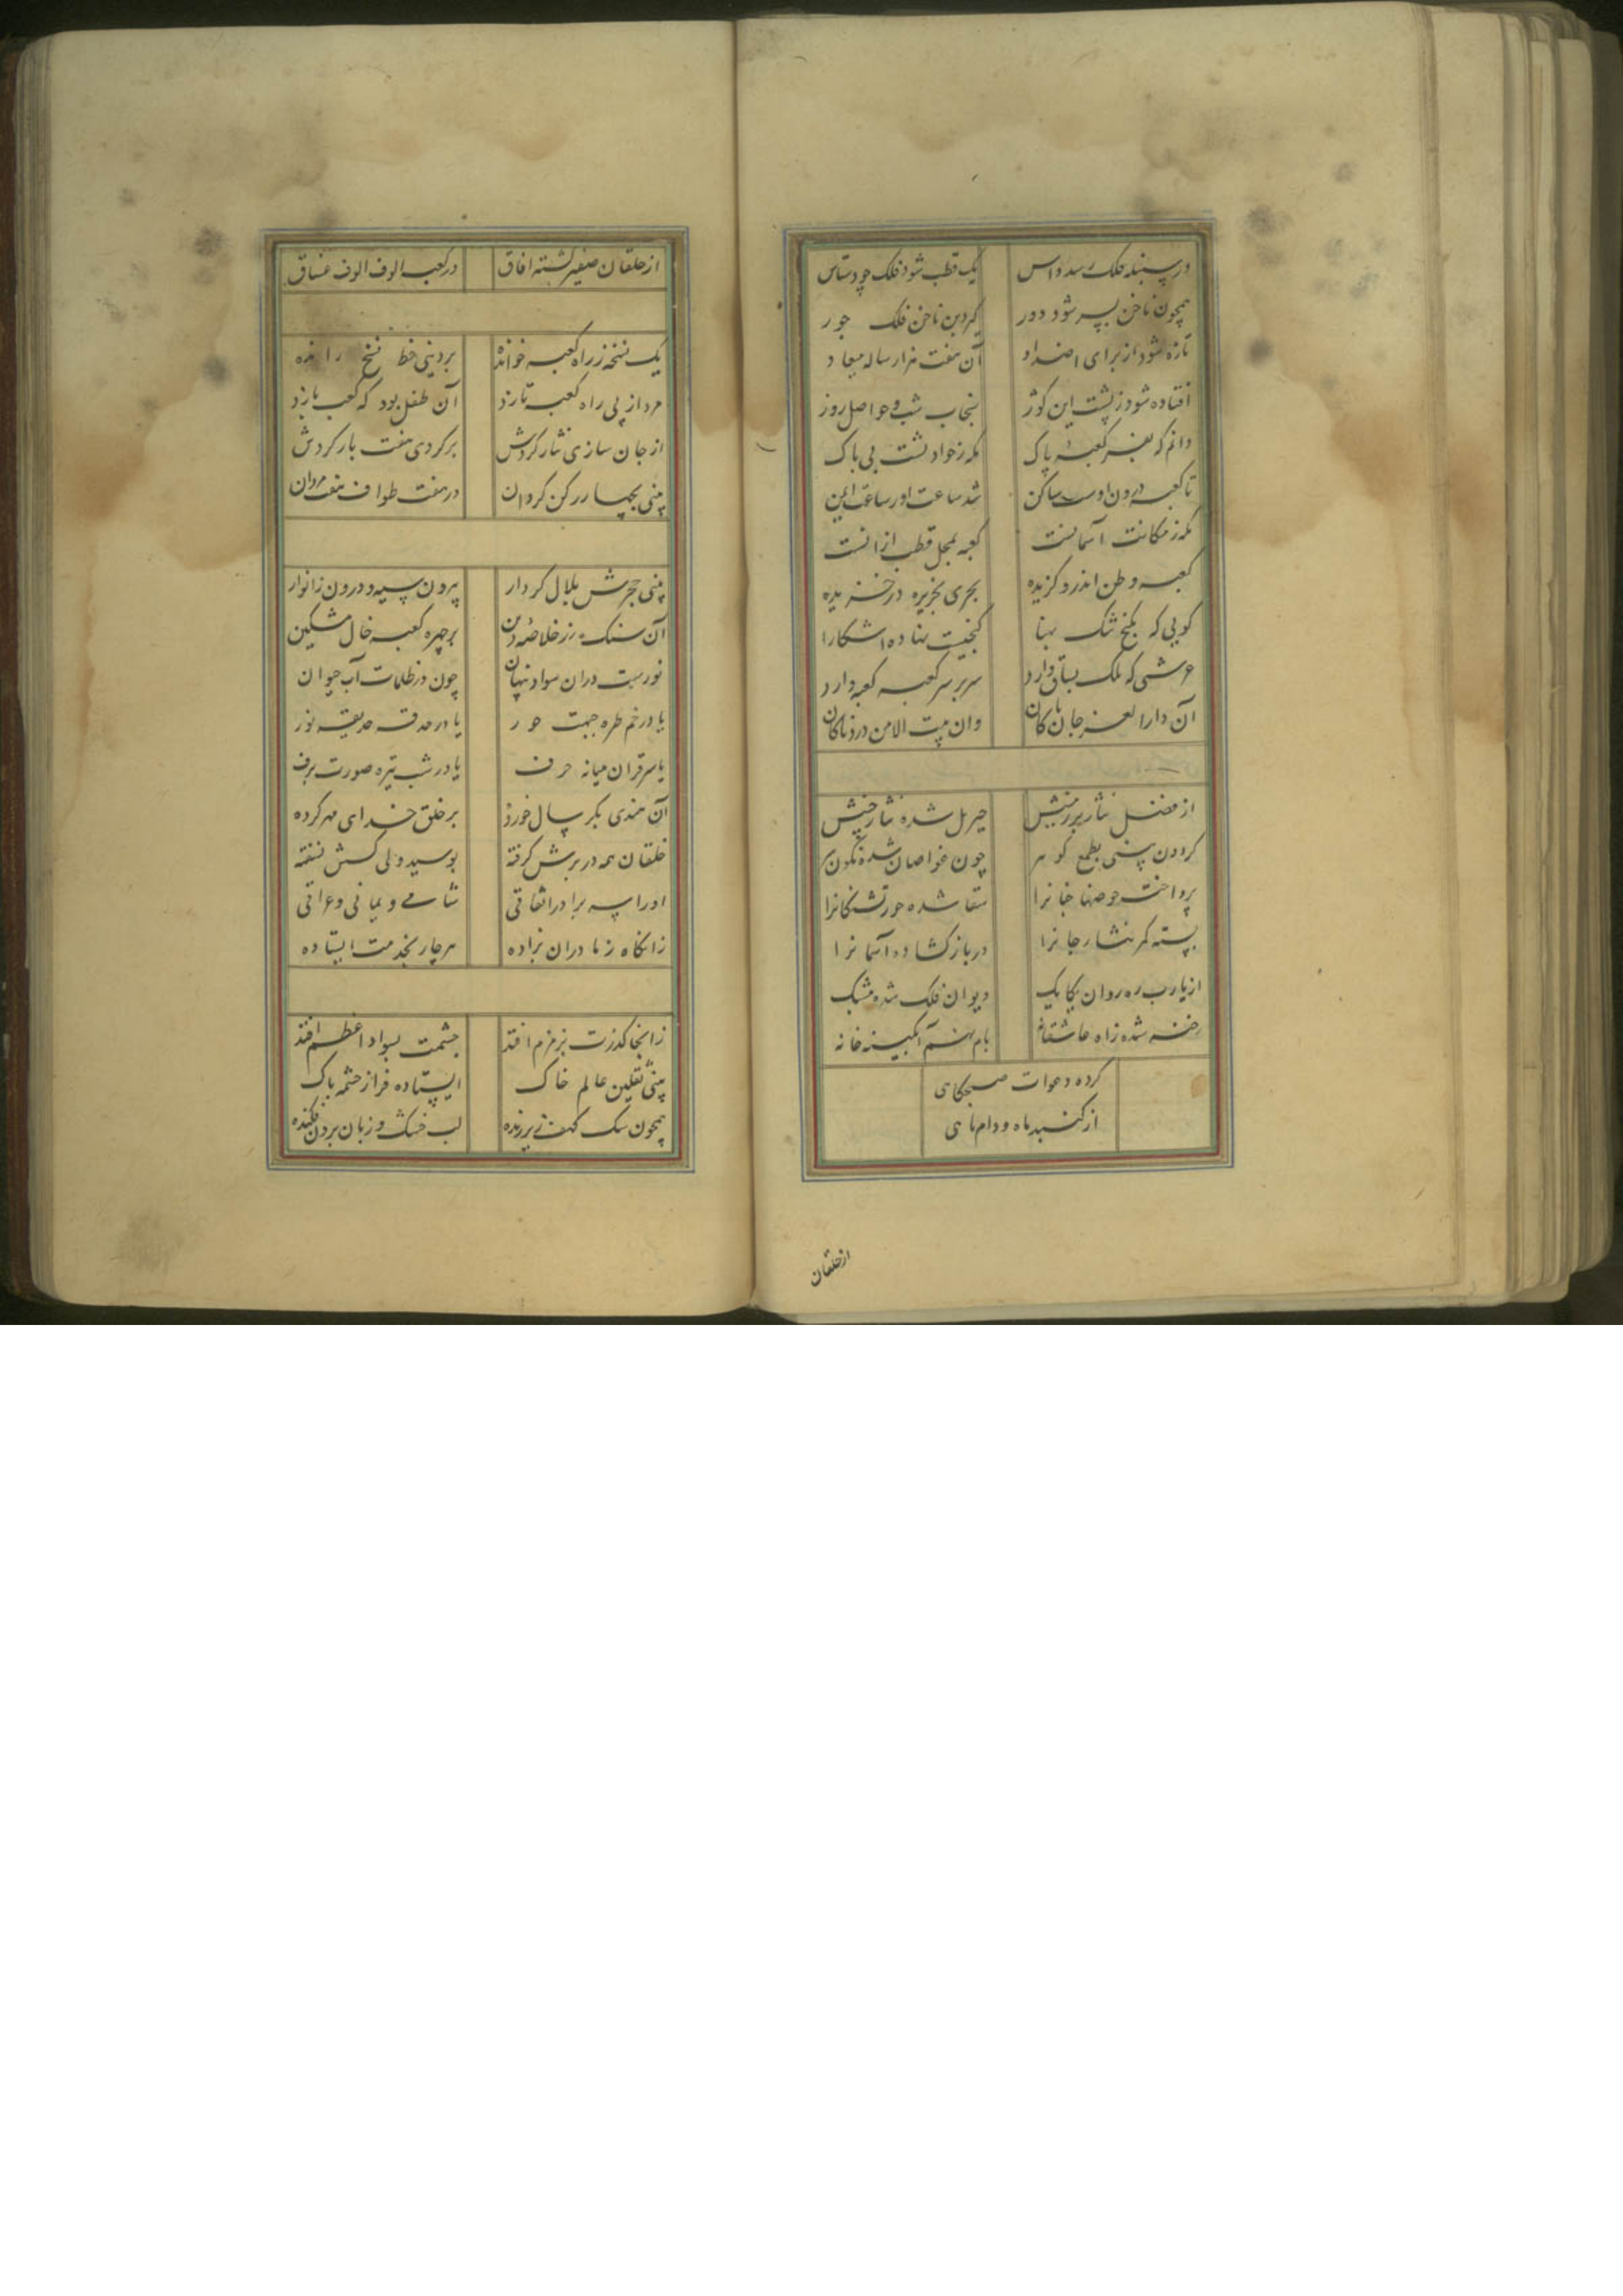 در سنبله فلک رسد داس یک قطب شود فلک چو دستاس
همچون ناخن بسر شود دور کردبن ناخن فلک جور
تازه شود از برای اضداد آن هفت هزار ساله میعاد
افتاده شود ز پشت این کوژ سنجاب شب و حواصل روز
دانم که بغیر کعبهٔ پاک مکه ز حوادثست بی باک
تا کعبه درون اوست ساکن شد ساعت او ز ساعت ایمن
مکه ز مکانت آسمانست کعبه بمحل قطب ازانست
کعبه وطن اندرو کزیده بحری بجزیره در خزیده
کویی که بکنج تنک بهنا کنجیست نهاده اشکارا
عرشی که ملک بساق دارد سر بر سر کعبه کعبه دارد
آن دارالعز جان پاکان وان بیت الامن دردناکان
از فضل نثار بر زمینش جبریل شده نثار چینش
کردون بینی بطمع کوهر چون غواصان شده نکون سر
پرداخت حوضها جانرا سقا شده حور تشنکانرا
بسته کمر نثار جانرا در باز کشاده آسمانرا
از یارب ره روان یکایک دیوان فلک شده مشبک
رخنه شده زاه عاشقانه بام نهم آبکینه خانه
کرده دعوات صبحکاهی
از کنبد ماه و دام ماهی
از حلقان
از حلقان صفیر کشته افاق در کعبه الوف الوف عشاق
یک نسخه ز راه کعبه خوانده بر دینی خط نسخ رانده
مرد از پی راه کعبه تازد آن طفل بود که کعب بازد
از جان سازی نثار کردش بر کردی هفت بار کردش
بینی بچهار رکن کردان در هفت طواف هفت مردان
بینی حجرش بلال کردار بیرون سیه و درون ز انوار
آن سنک زر خلاصهٔ دین بر چهره کعبه خال مشکین
نوریست دران سواد پنهان چون در ظلمات آب حیوان
یا در خم طره جبهت حور یا در حدقه حدیقه نور
یا سر قران میانه حرف یا در شب تیره صورت برف
آن هندی بکر سال خورده بر خلق خدای مهر کرده
خلقان همه در برش کرفته بوسیده ولی کسش نسفته
او را سه برادر اتفاقی شامی و یمانی و عراقی
زانکاه ز مادران بزاده هر چار بخدمت ایستاده
زانجا کذرت بزمزم افتد چشمت بسواد اعظم افتد
بینی ثقلین عالم خاک ایستاده فراز چشمه پاک
همچون سک کهف زیر زنده لب خشک و زبان برون فکنده